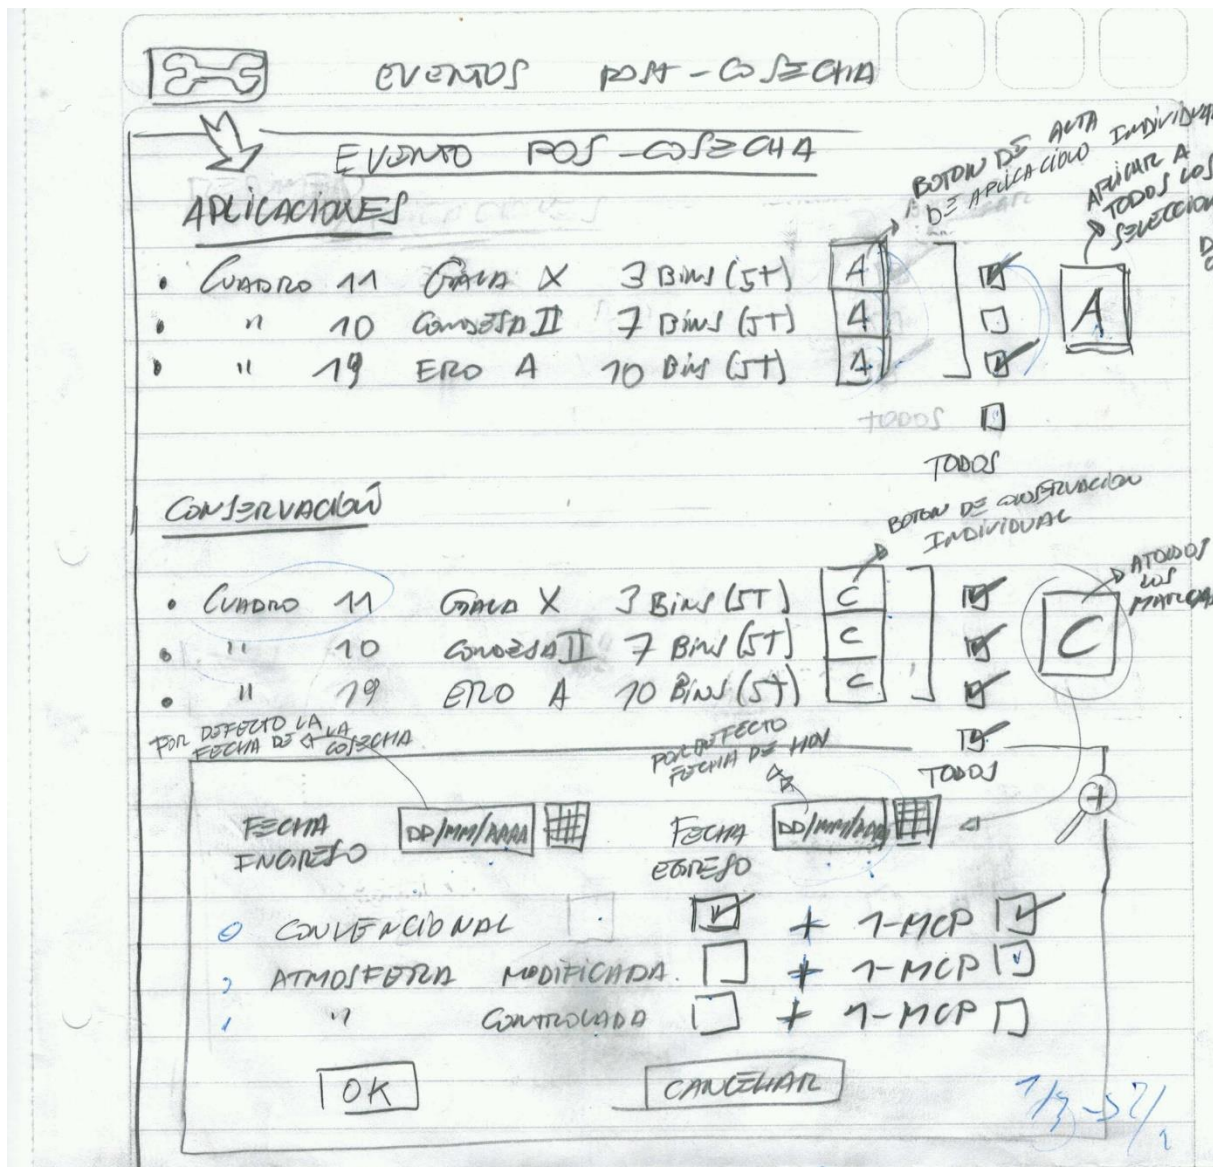 EVENTOS POST-COSECHA
EVENTO POS-COSECHA
APLICACIONES
BOTON DE ALTA
DE APLICACIÓN INDIVIDUAL
APLICAR A
TODOS LOS
• CUADRO 11 GALA X 3 BINS (5T) A
• " 10 CONDESA II 7 BINS (5T) A
• " 19 ERO A 10 BINS (5T) A
A
TODOS
TODOS
CONSERVACIÓN
BOTON DE CONSERVACION
INDIVIDUAL
A TODOS
LOS
• CUADRO 11 GALA X 3 BINS (5T) C
• " 10 CONDESA II 7 BINS (5T) C
• " 19 ERO A 10 BINS (5T) C
C
TODOS
POR DEFECTO LA
FECHA DE LA
COSECHA
POR DEFECTO
FECHA DE HOY
FECHA
INGRESO
DD/MM/AAAA
FECHA
EGRESO
DD/MM/AAAA
CONVENCIONAL + 1-MCP
ATMOSFERA MODIFICADA + 1-MCP
" CONTROLADA + 1-MCP
OK CANCELAR